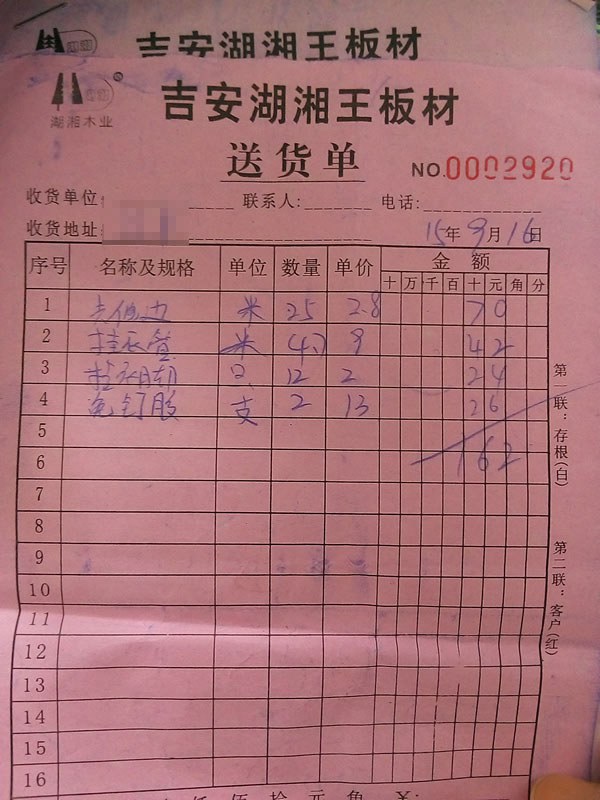 吉安湖湘王板材
湖湘木业 ® 吉安湖湘王板材
送货单 NO.0002920
收货单位: 联系人: 电话:
收货地址: 15年9月16日
序号 名称及规格 单位 数量 单价 金额
十 万 千 百 十 元 角 分
1 米 25 2.8 70
2 挂衣管 米 4.7 9 42
3 12 2 24
4 免钉胶 支 2 13 26
5
6 162
7
8
9
10
11
12
13
14
15
16
第一联:存根(白)
第二联:客户(红)
佰 拾 元 角 ¥: